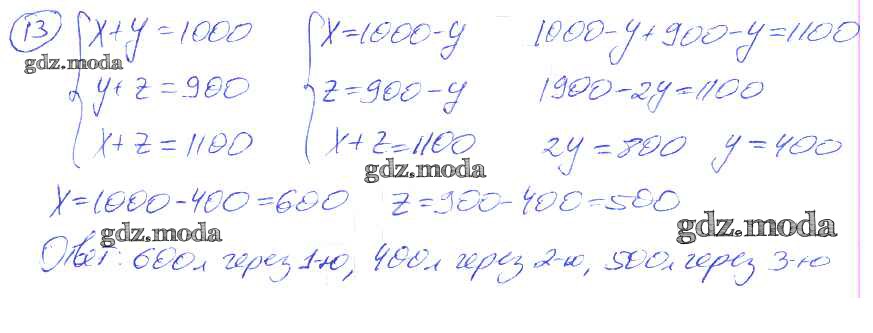 13 { x+y=1000 { x=1000-y 1000-y+900-y=1100
gdz.moda
y+z=900 z=900-y 1900-2y=1100
x+z=1100 x+z=1100 2y=800 y=400
gdz.moda
x=1000-400=600 z=900-400=500
gdz.moda
gdz.moda
Ответ: 600л через 1-ю, 400л через 2-ю, 500л через 3-ю